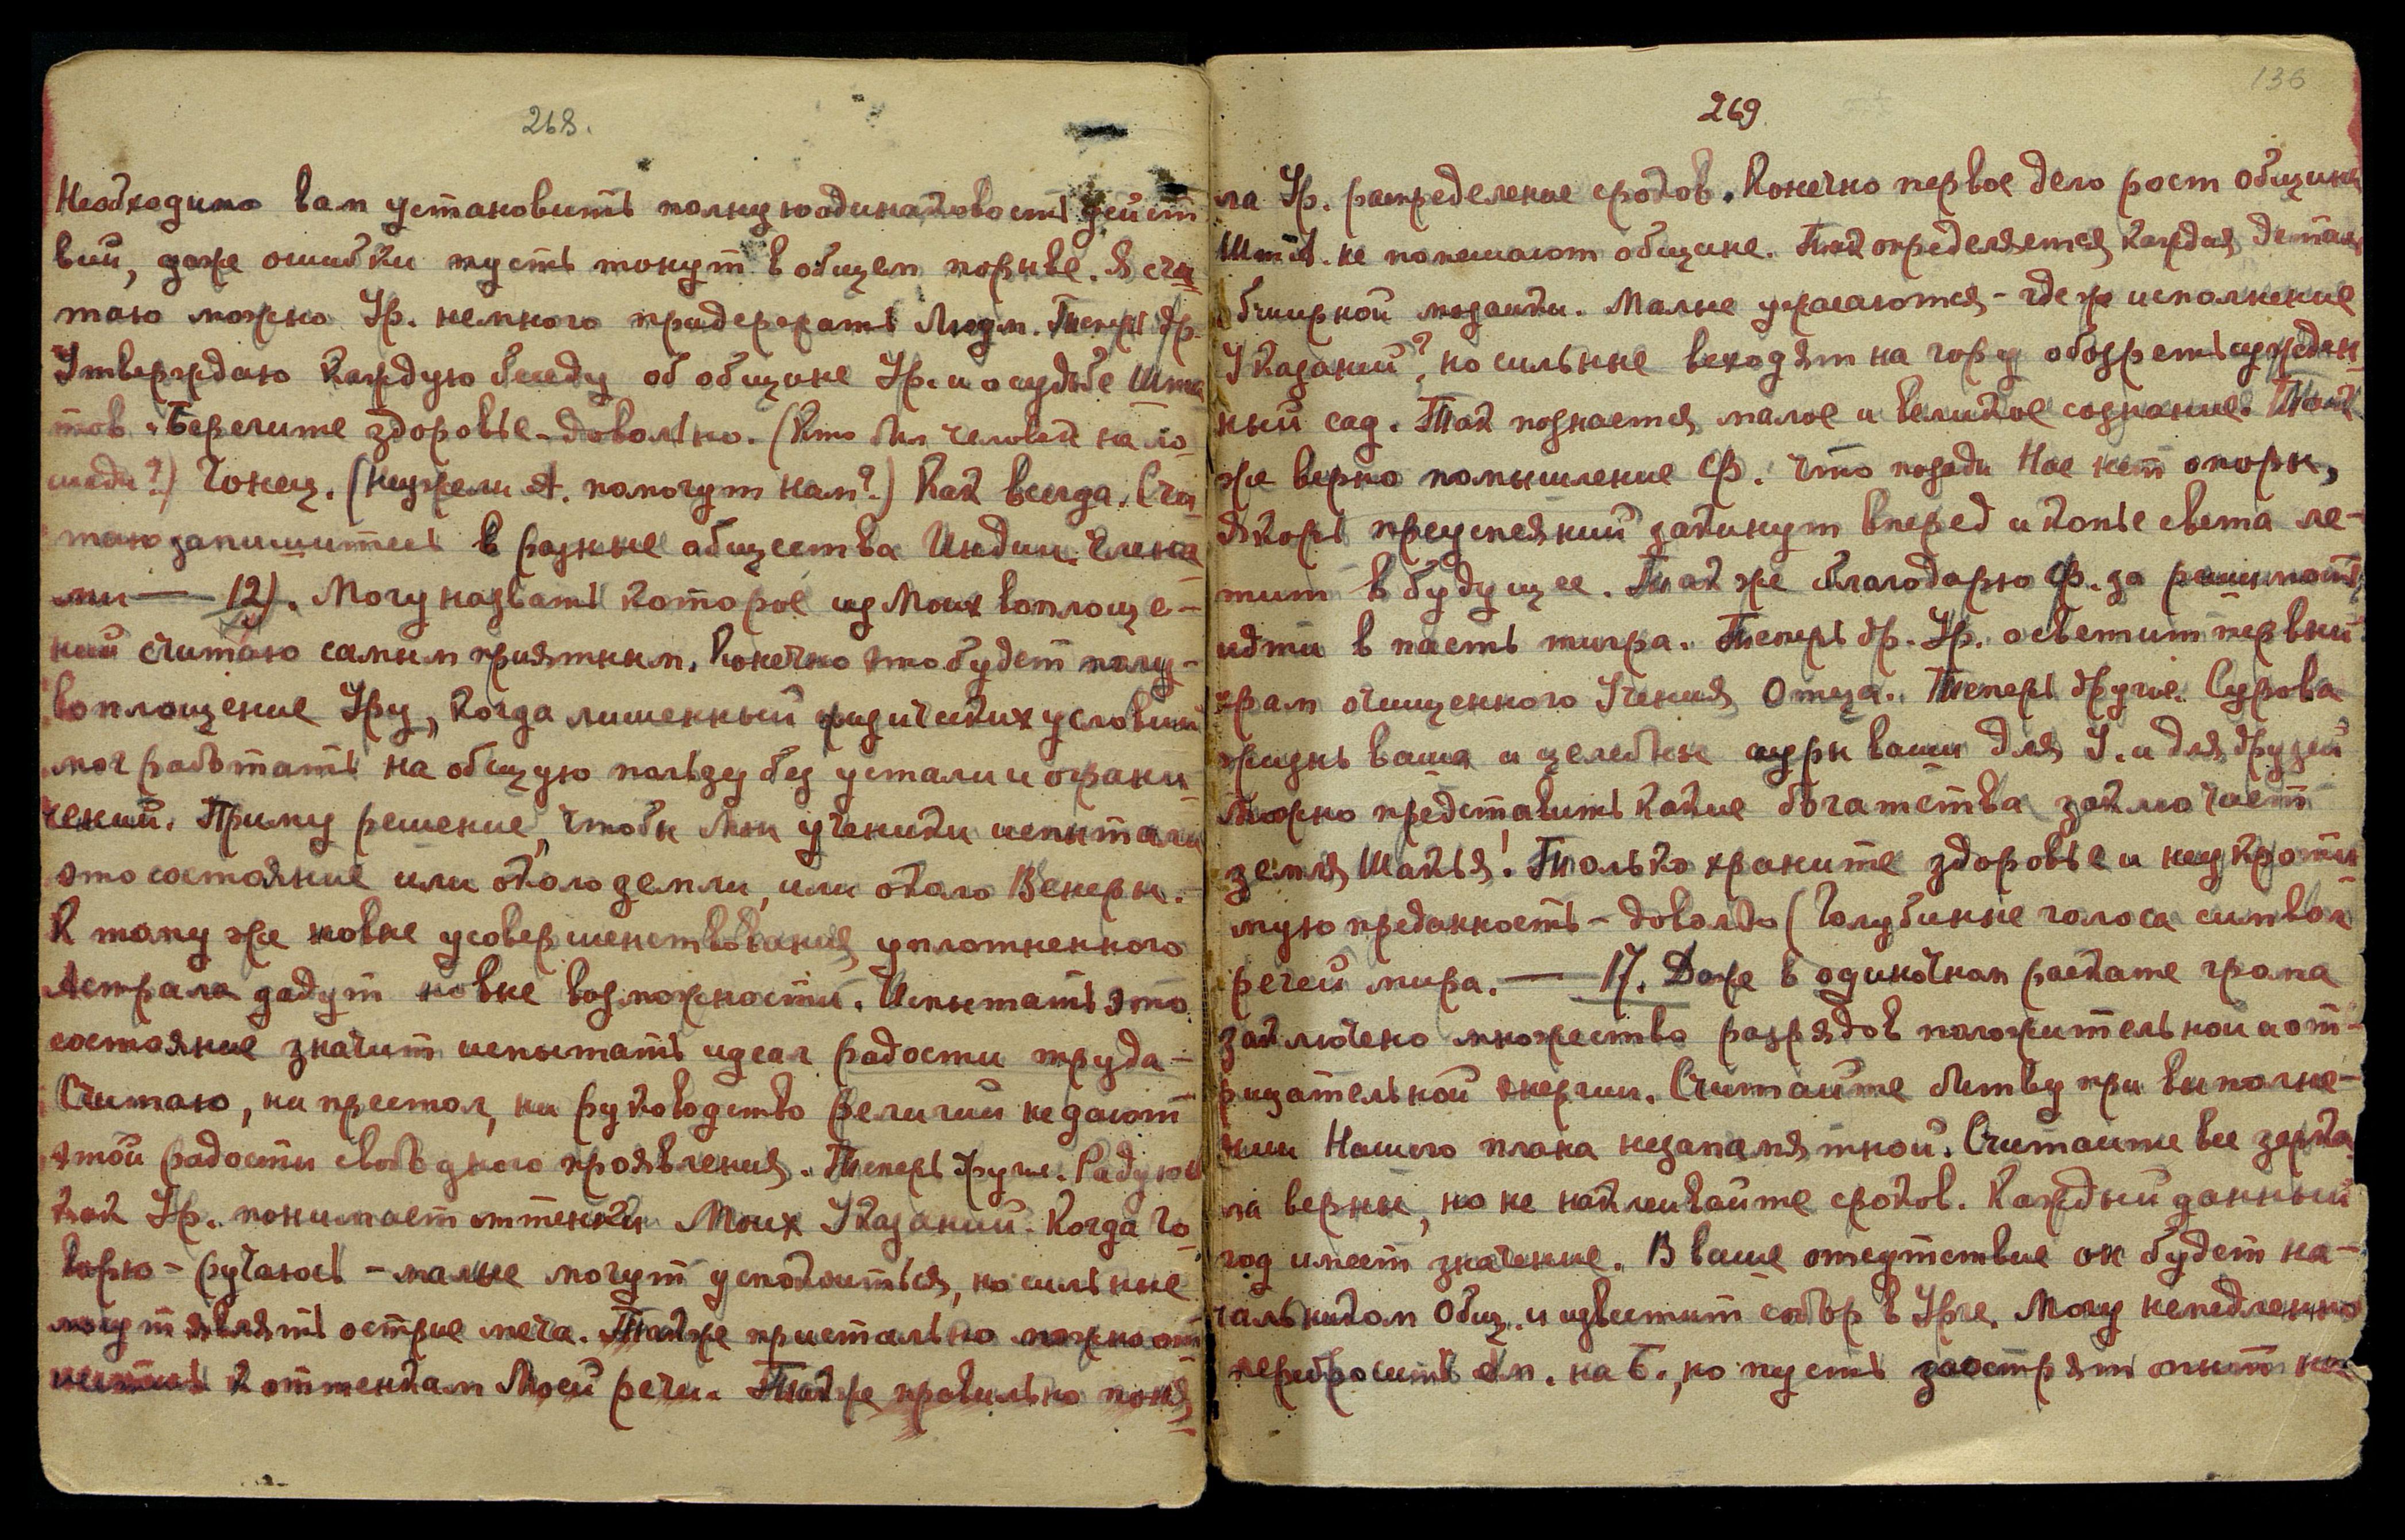 268.
Необходимо вам установить полную одинаковость дейст
вий, даже ошибки пусть тонут в общем порыве. Я счи
таю можно Ур. немного придержать Людм. Теперь др.
Утверждаю каждую беседу об общине Ур. и о судьбе Шта
тов. Берегите здоровье - довольно. (Кто был человек на ло
шади?) Гонец. (Неужели А. помогут нам?) Как всегда. Счи
таю запишитесь в разные общества Индии. Члена
ми — 12). Могу назвать которое из Моих воплоще-
ний считаю самым приятным. Конечно это будет полу-
воплощение Уру, когда лишенный физических условий
мог работать на общую пользу без устали и ограни
чений. Приму решение, чтобы Мои ученики испытали
это состояние или около земли, или около Венеры.
К тому же новые усовершенствования уплотненного
Астрала дадут новые возможности. Испытать это
состояние значит испытать идеал радости труда -
Считаю, ни престол, ни руководство религий не дают
этой радости свободного проявления. Теперь другие. Радуюсь
как Ур. понимает оттенки Моих Указаний. Когда Го
ворю - ручаюсь - малые могут успокоиться, но сильные
могут являть острие меча. Также пристально можно от
нестись к оттенкам Моей речи. Также правильно поня
136
269
ла Ур. распределение сроков. Конечно первое дело рост общины
Штаты. не помешают общине. Так определяется каждая деталь
обширной мозаики. Малые ужасаются - где же исполнение
Указаний?, но сильные восходят на гору обозреть сужден
ный сад. Так познается малое и великое сознание. Так
же верно помышление Ф. что позади Нас нет опоры,
якорь преуспеяний закинут вперед и копье света ле-
тит в будущее. Так же благодарю Ф. за решимость
идти в пасть тигра. Теперь др. Ур. осветит первый
храм очищенного Учения Отца. Теперь другие. Сурова
жизнь ваша и целебны ауры ваши для У. и для друзей
Можно представить какие богатства заключает
земля Шакья! Только храните здоровье и неукроти
мую преданность - довольно (Голубиные голоса символ
речей мира. — 17. Даже в одиночном раскате грома
заключено множество разрядов положительной и от-
рицательной энергии. Считайте битву при выполне-
нии Нашего плана незапамятной. Считайте все зерка
ла верны, но не наклеивайте сроков. Каждый данный
год имеет значение. В ваше отсутствие он будет на-
чальником Общ. и известит сбор в Урге. Могу немедленно
перебросить на Б., но пусть заострят опыт